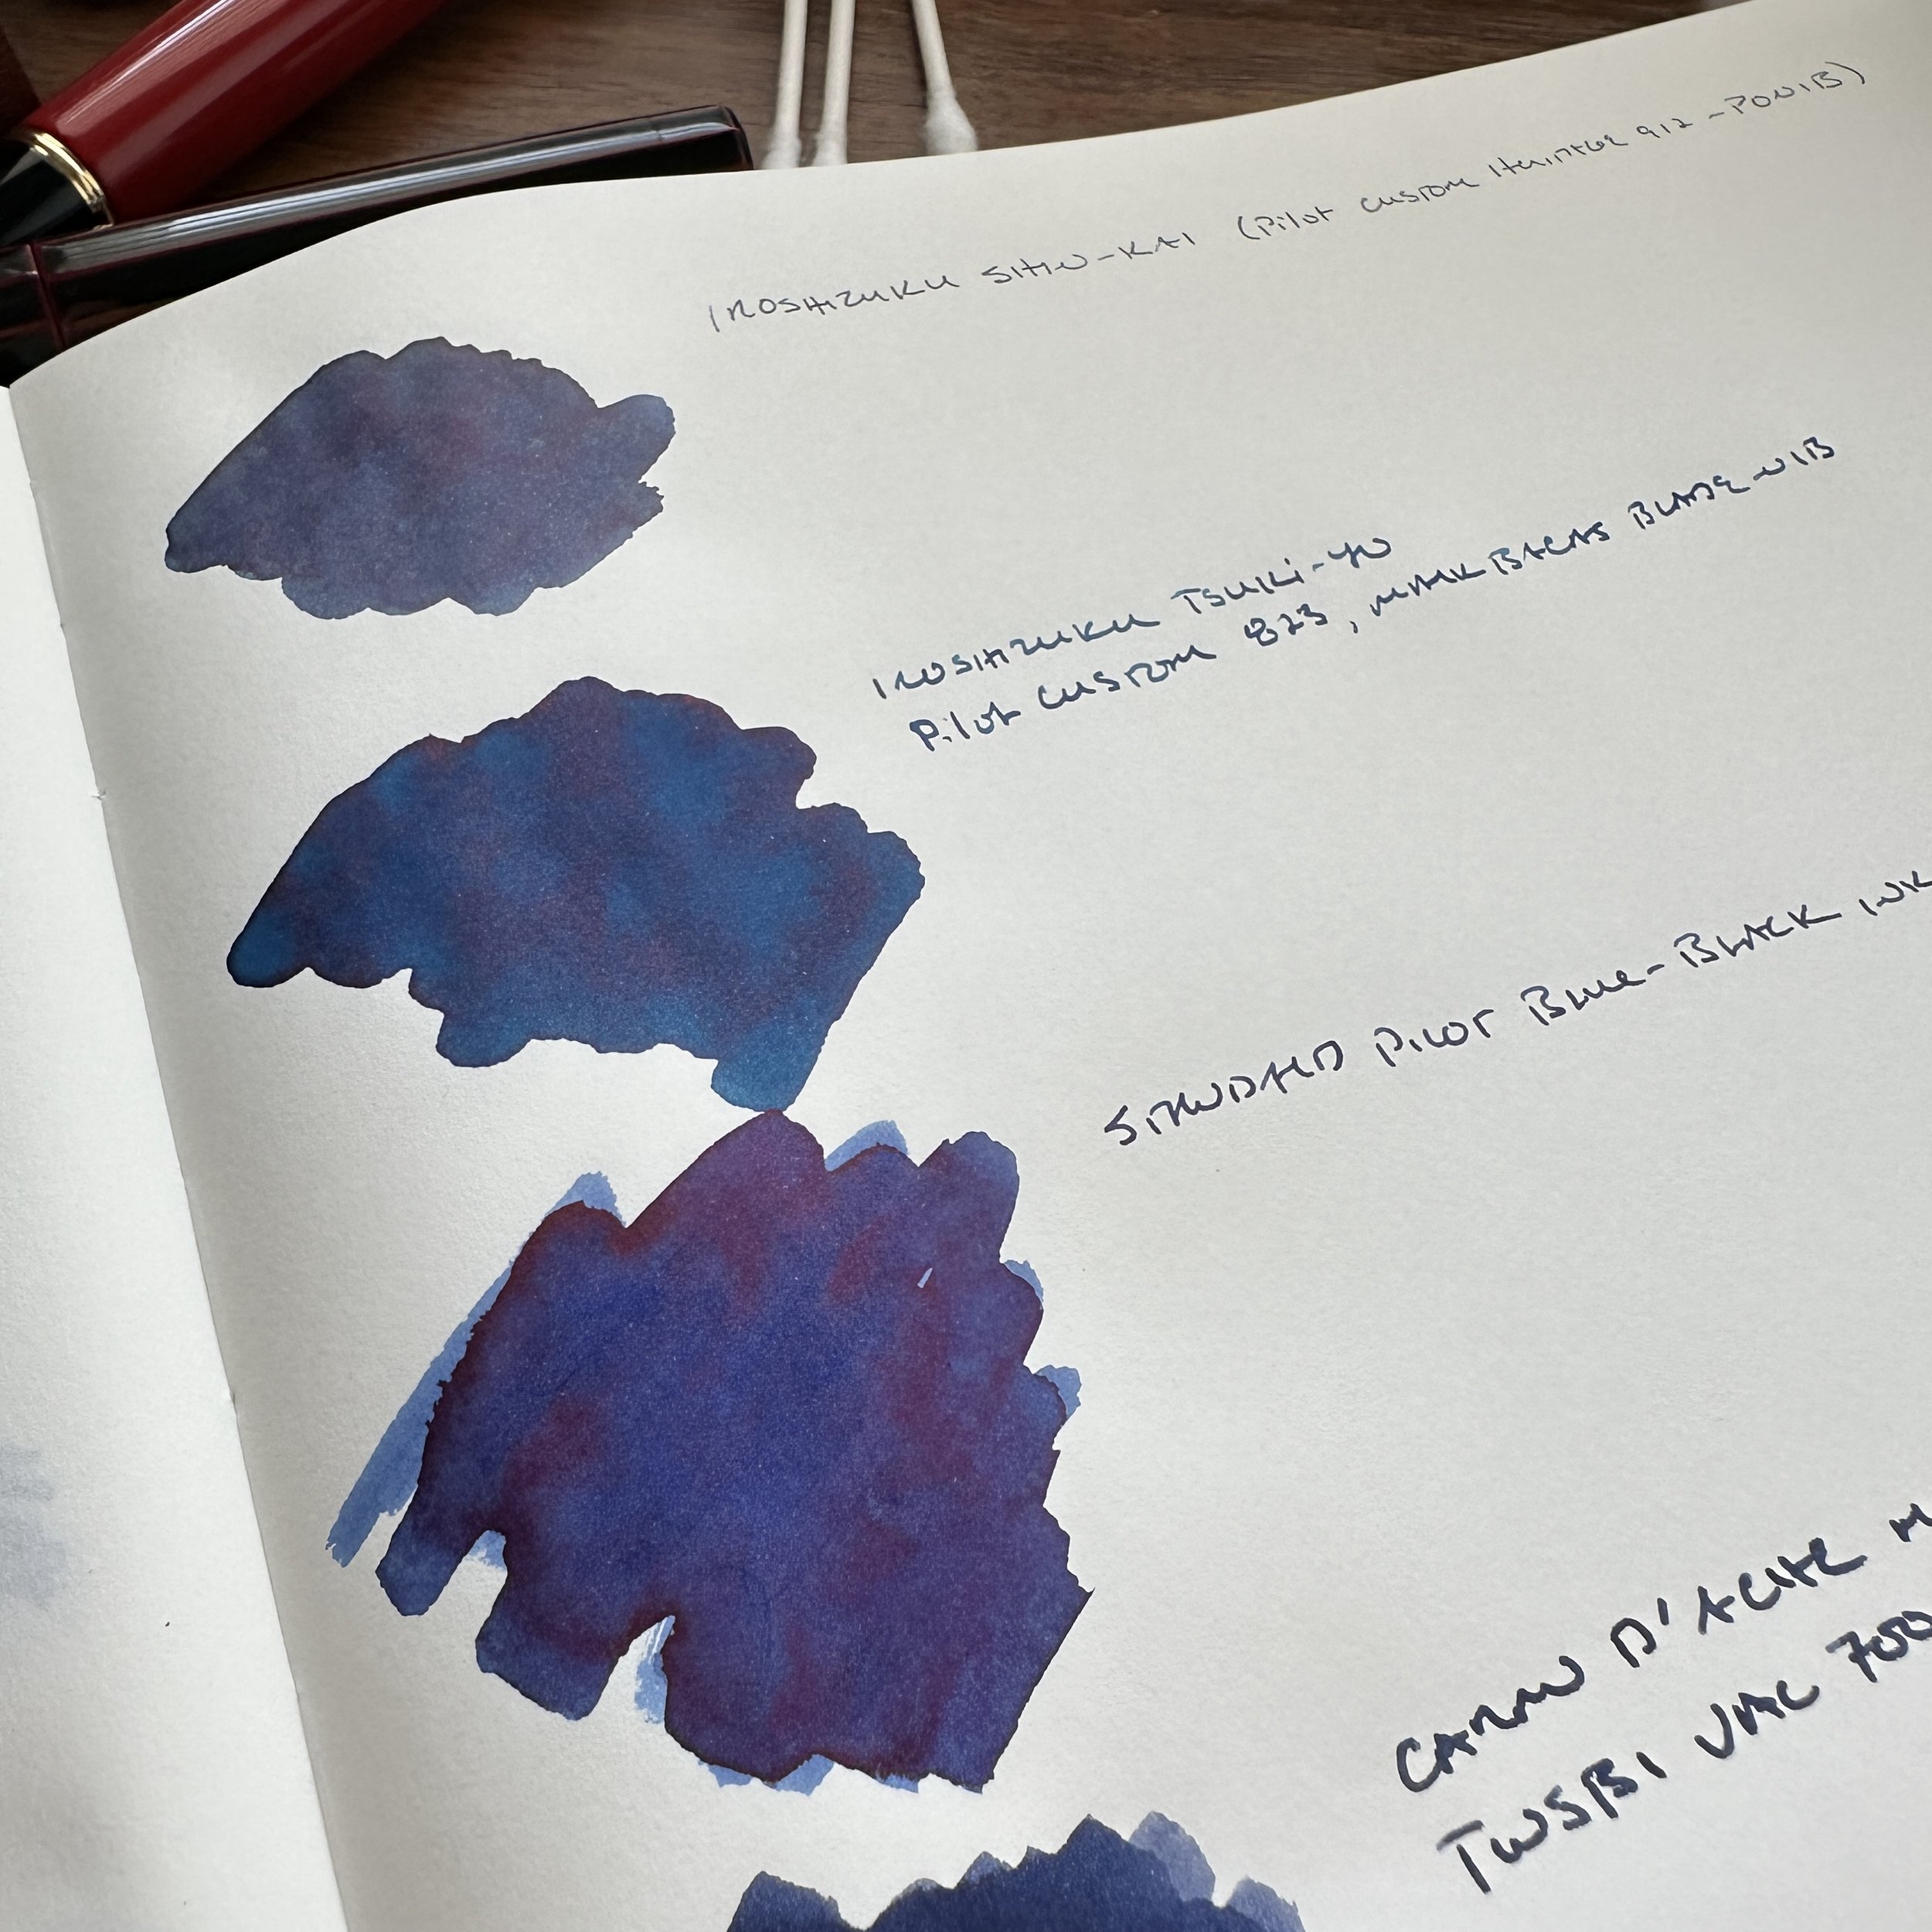 IROSHIZUKU SHIN-KAI (Pilot Custom Heritage 912 - PO NIB)
IROSHIZUKU TSUKI-YO
Pilot Custom 823, MARK BACAS BLADE-NIB
STANDARD PILOT Blue-BLACK INK
CARAN D'ACHE M
TWSBI VAC 700